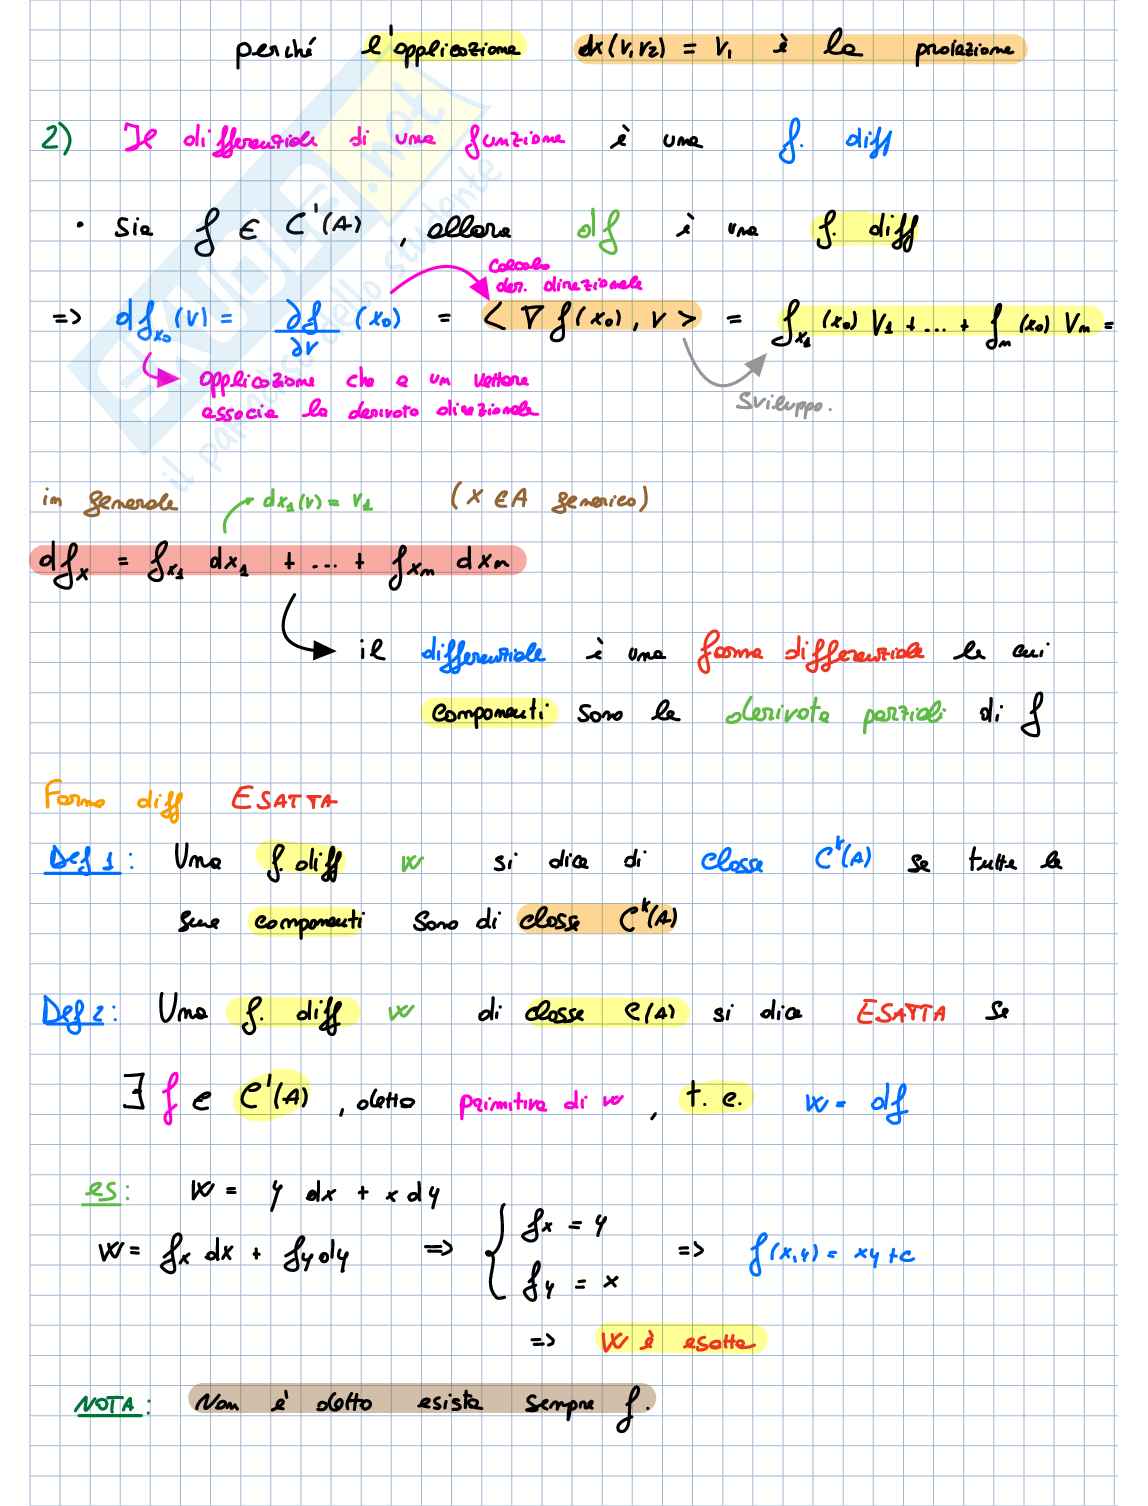 perché l'applicazione dx(v1,v2) = v1 è la proiezione
2) Il differenziale di una funzione è una f. diff
• Sia f ∈ C¹(A), allora df è una f. diff
calcolo
der. direzionale
=> df_x₀(v) = ∂f/∂v (x₀) = < ∇f(x₀), v > = f_x₁(x₀) v₁ + ... + f_n(x₀) v_n =
applicazione che a un vettore
associa la derivata direzionale
Sviluppo.
in generale dx₁(v) = v₁ (x ∈ A generico)
df_x = f_x₁ dx₁ + ... + f_xn dxn
il differenziale è una forma differenziale le cui
componenti sono le derivate parziali di f
Forme diff ESATTA
Def 1: Una f. diff w si dice di classe Cᵏ(A) se tutte le
sue componenti sono di classe Cᵏ(A)
Def 2: Una f. diff w di classe C(A) si dice ESATTA se
∃ f ∈ C¹(A), detto primitiva di w, t.c. w = df
es: w = y dx + x dy
w = f_x dx + f_y dy => { f_x = y => f(x,y) = xy + c
f_y = x
=> w è esatta
NOTA: Non è detto esista sempre f.
SKUOLA.net
il paradiso dello studente